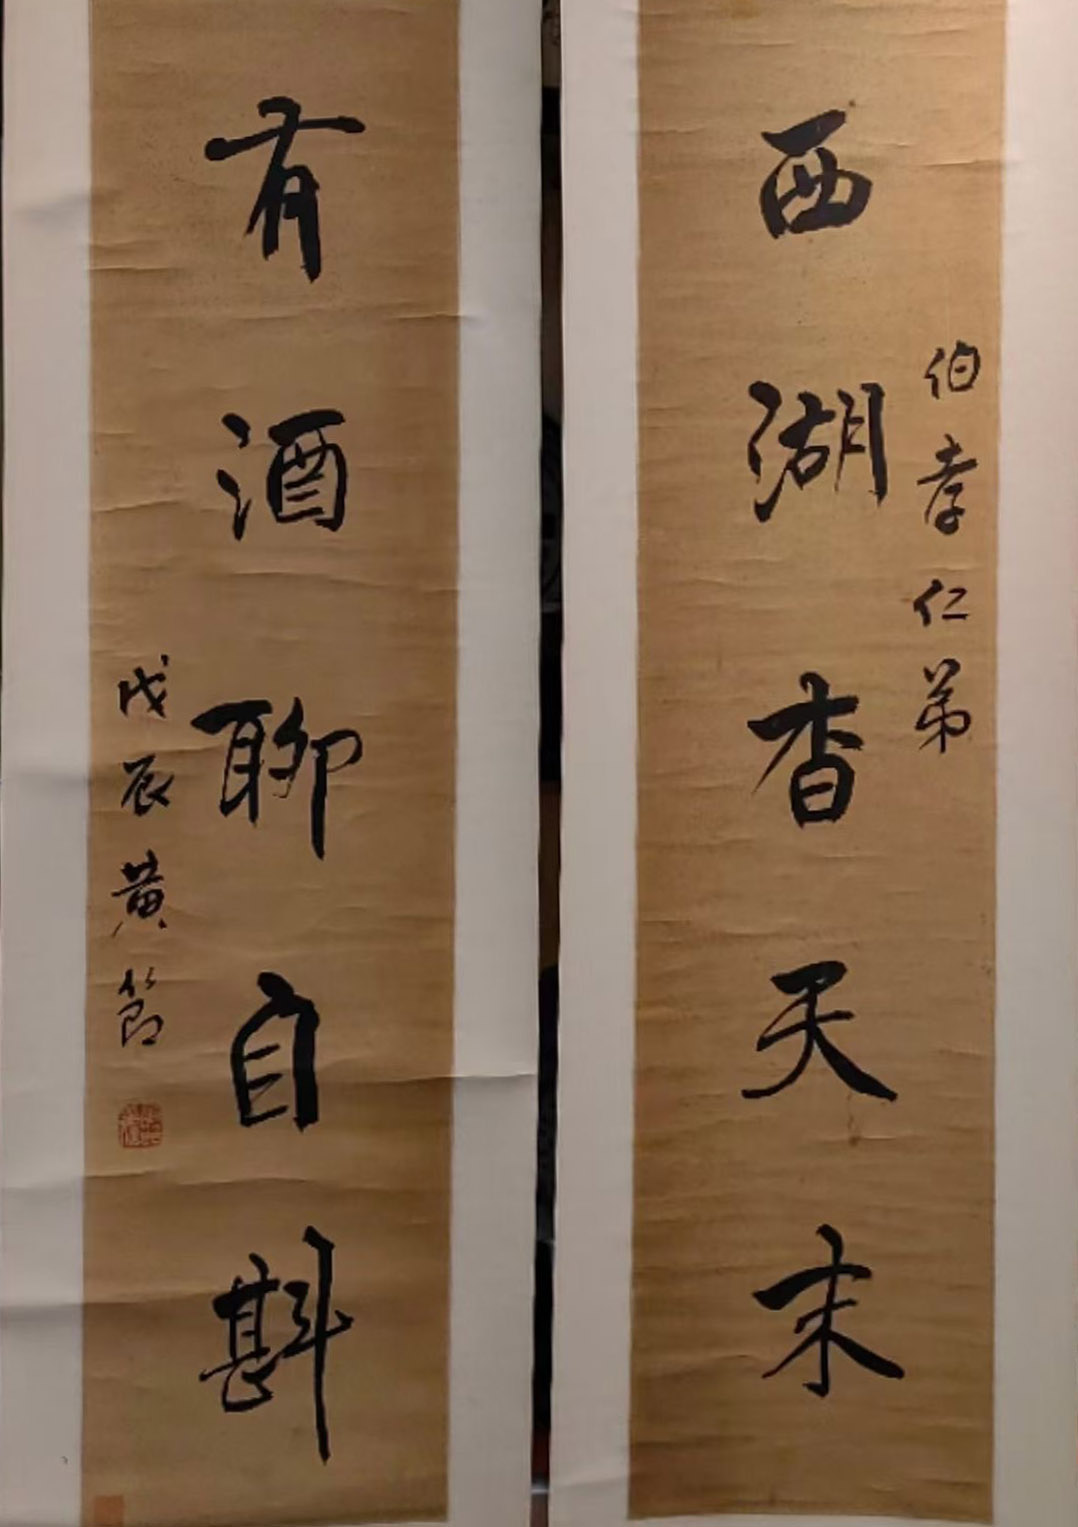 伯孝仁弟
西湖杳天末
有酒聊自斟
戊辰黃節